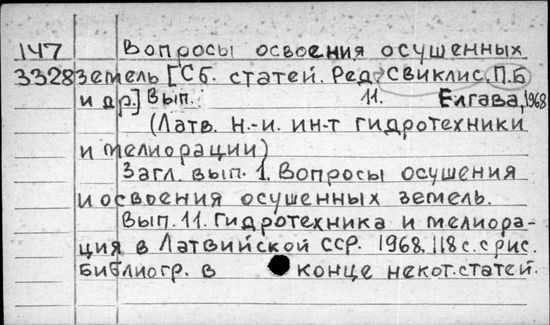 147 Вопросы освоения осушенных
3328 земель [Сб. статей. Ред. Свиклис, П.Б
и др.] Вып. 11. Елгава, 1968
(Латв. н.-и. ин-т гидротехники
и мелиорации)
Загл. вып. 1. Вопросы осушения
и освоения осушенных земель.
Вып. 11. Гидротехника и мелиора-
ция в Латвийской ССР. 1968. 118 с. с рис.
Библиогр. в конце некот. статей.